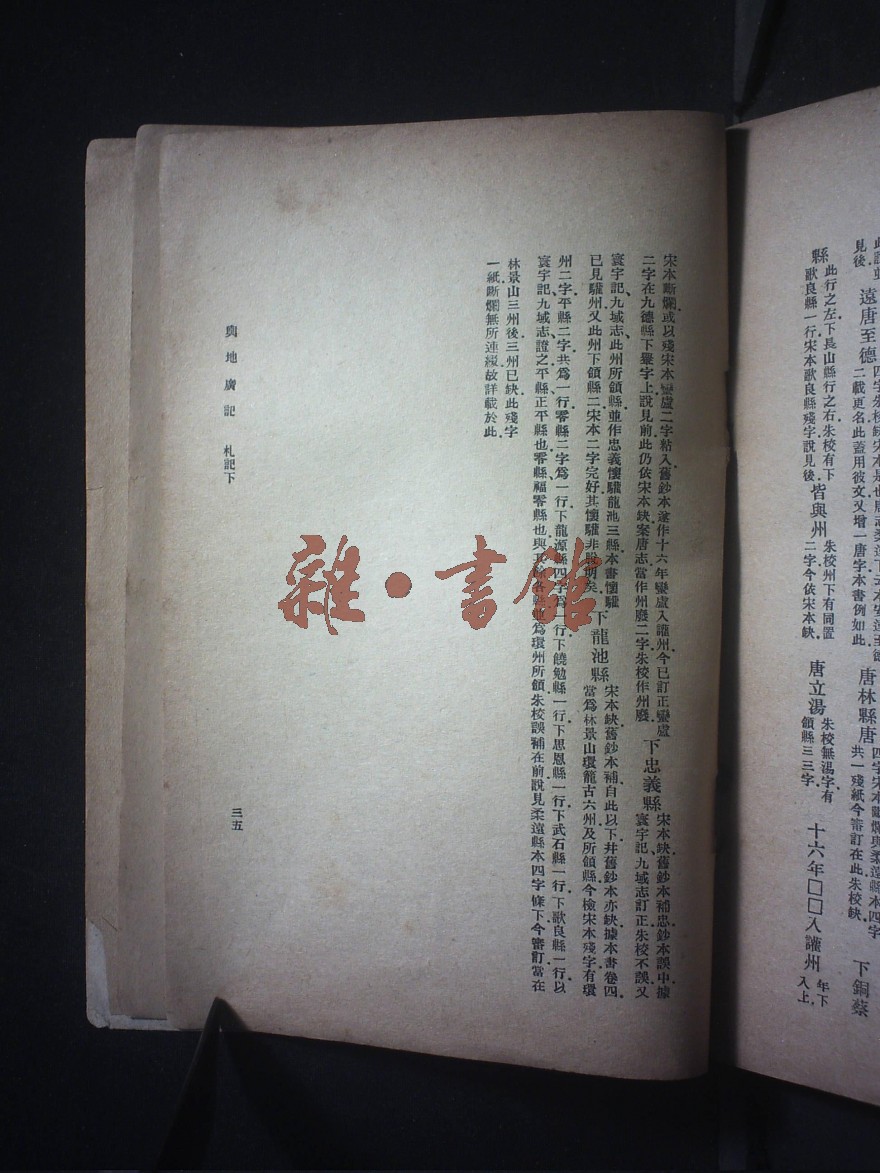 此說並
見後
遠唐至德
四字朱校缺宋本是也唐志柔遠下云本安遠至德
二載更名此蓋用彼文又增一唐字本書例如此．
唐林縣唐
四字宋本斷爛與柔遠縣本四字
共一殘紙今審訂在此朱校缺．
下銅蔡
縣
此行之左下長山縣行之右朱校有下
歌良縣一行宋本歌良縣殘字說見後．
皆與州
朱校州下有同置
二字今依宋本缺．
唐立湯
朱校無湯字有
領縣三三字．
十六年□□入讙州
年下
入上．
宋本斷爛或以殘宋本蠻盧二字粘入舊鈔本遂作十六年蠻盧入讙州今已訂正蠻盧
二字在九德縣下蠻字上說見前此仍依宋本缺案唐志當作州廢二字朱校作州廢．
下忠義縣
宋本缺舊鈔本補忠鈔本誤中據
寰宇記、九域志訂正朱校不誤又
寰宇記、九域志、此州所領縣並作忠義懷驩龍池三縣本書懷驩
已見驩州又此州下領縣二宋本二字完好其懷驩非脫明矣．
下龍池縣
宋本缺舊鈔本補自此以下幷舊鈔本亦缺據本書卷四．
當爲林景山環籠古六州及所領縣今檢宋本殘字有環
州二字平縣二字共爲一行零縣二字爲一行下龍源縣四字爲一行下饒勉縣一行下思恩縣一行下武石縣一行下歌良縣一行以
寰宇記九域志、證之平縣正平縣也零縣福零縣也與其餘各縣並爲環州所領朱校誤補在前說見柔遠縣本四字條下今審訂當在
林景山三州後三州已缺此殘字
一紙斷爛無所連綴故詳載於此．
輿地廣記　札記下
三五
雜·書館